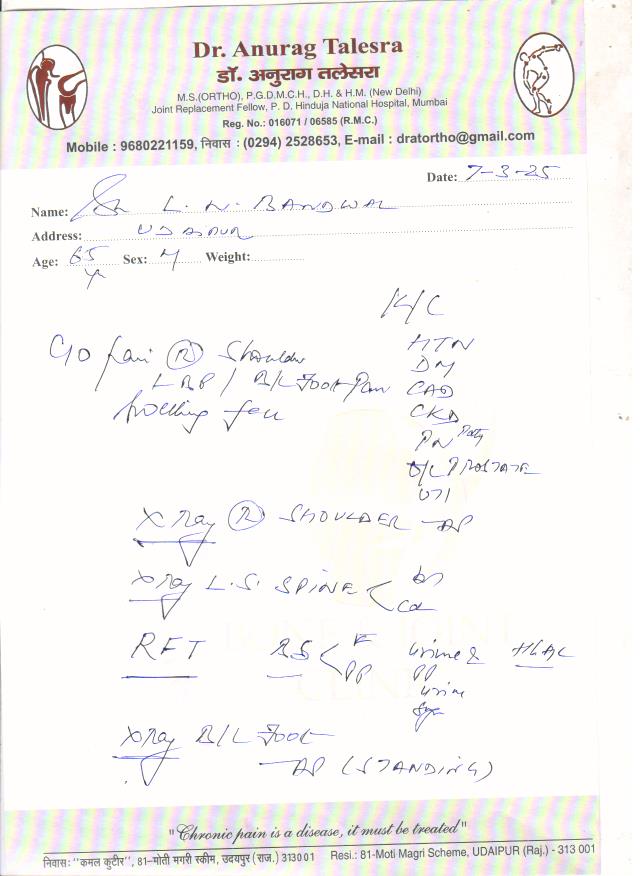 Dr. Anurag Talesra
डॉ. अनुराग तलेसरा
M.S.(ORTHO), P.G.D.M.C.H., D.H. & H.M. (New Delhi)
Joint Replacement Fellow, P. D. Hinduja National Hospital, Mumbai
Reg. No.: 016071 / 06585 (R.M.C.)
Mobile : 9680221159, निवास : (0294) 2528653, E-mail : dratortho@gmail.com
Date: 7-3-25
Name: L. N. BANDWAL
Address: UDAIPUR
Age: 65 Sex: M Weight:
yr
K/C
HTN
DM
CAD
CKD
C/o Pain (R) Shoulder
LBP / B/L Foot Pain
Swelling feet
PROSTATE
UTI
X Ray (R) SHOULDER AP
X Ray L.S. SPINE
RFT BS F PP Urine
PP
Urine
X Ray B/L Foot
AP (STANDING)
"Chronic pain is a disease, it must be treated"
निवास: "कमल कुटीर", 81-मोती मगरी स्कीम, उदयपुर (राज.) 313001 Resi.: 81-Moti Magri Scheme, UDAIPUR (Raj.) - 313 001